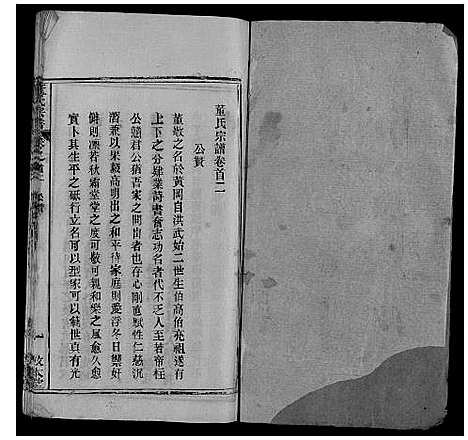 董氏宗譜卷首二
公贊
董敬之名於黃岡自洪武始二世生伯高伯亮祖遂有
上下之分肄業詩書奮志功名者代不乏人至若帝柱
公戇君公猶吾家之間出者也存心剛直賦性仁慈沉
潛兼以果毅高明出之和平待家庭則愛浮冬日禦奸
俯則凜若秋霜堂堂之度可敬可親和樂之風愈久愈
實卜其生平之砥行立名可以型家可以範世貞有光